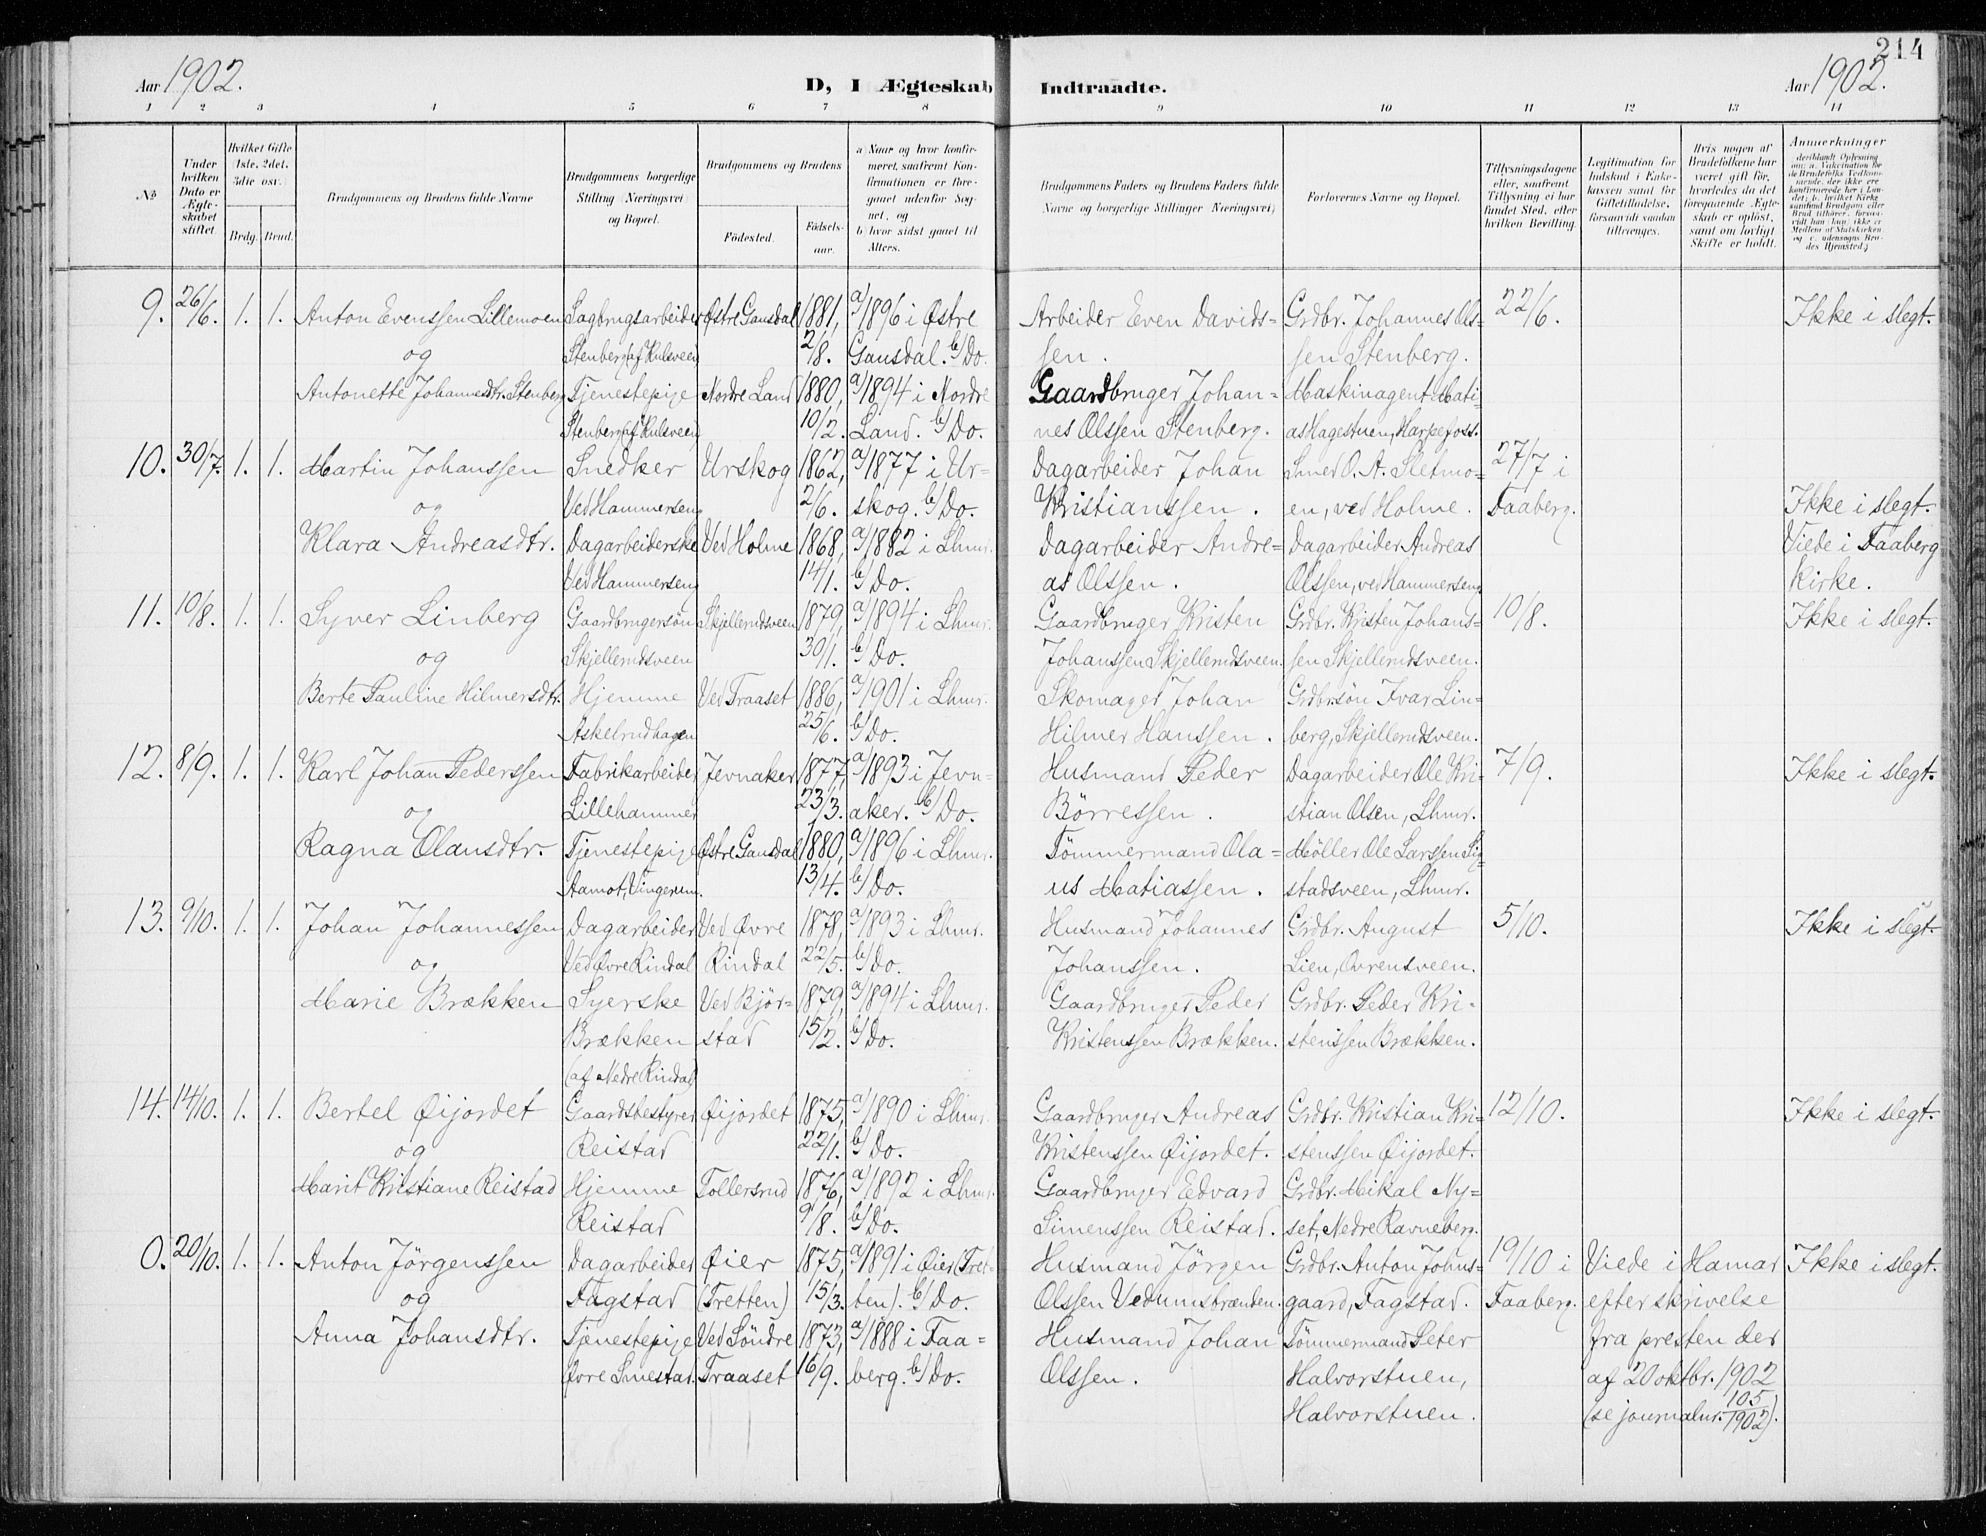 214
Aar 1902. D, I Ægteskab Indtraadte. Aar 1902.
1 2 3 4 5 6 7 8 9 10 11 12 13 14
No
Under hvilken Dato er Ægteskabet stiftet.
Hvilket Gifte (1ste, 2det, 3die osv.)
Brdg. Brud.
Brudgommens og Brudens fulde Navne
Brudgommens borgerlige Stilling (Næringsvei) og Bopæl.
Brudgommens og Brudens
Fødested. Fødselsaar.
a) Naar og hvor konfirmeret, saafremt Konfirmationen er foregaaet udenfor Sognet, og
b) hvor sidst gaaet til Alters.
Brudgommens Faders og Brudens Faders fulde Navne og borgerlige Stillinger (Næringsvei)
Forlovernes Navne og Bopæl.
Tillysningsdagene eller, saafremt Tillysning ei har fundet Sted, efter hvilken Bevilling.
Legitimation for Indskud i Enkekassen samt for Giftetilladelse, forsaavidt saadan tiltrænges.
Hvis nogen af Brudefolkene har været gift før, hvorledes da det foregaaende Ægteskab er opløst, samt om lovligt Skifte er holdt.
Anmerkninger
9. 26/6. 1. 1. Anton Evenssen Lillemoen Sagbrugsarbeider Østre Gausdal 1881, a/1896 i Østre Arbeider Even Davids- Grdbr. Johannes Ols- 22/6. Ikke i slegt.
og Stenberg (af Hulsveen) 2/8. Gausdal. b/Do. sen. sen Stenberg.
Antonette Johannesdtr. Stenberg Tjenestepige Nordre Land 1880, a/1894 i Nordre Gaardbruger Johan- Maskinagent Mati-
Stenberg (af Hulsveen) 10/2. Land. b/Do. nes Olssen Stenberg. as Hagestuen, Harpefoss.
10. 30/7. 1. 1. Martin Johanssen Snedker Urskog 1862, a/1877 i Ur- Dagarbeider Johan Smed O. A. Sletmo- 27/7 i
og Ved Hammerseng 2/6. skog. b/Do. Kristianssen. en, ved Holme. Faaberg. Ikke i slegt.
Klara Andreasdtr. Dagarbeiderske Ved Holme 1868, a/1882 i Lhmr. Dagarbeider Andre- Dagarbeider Andreas Viede i Faaberg
Ved Hammerseng 14/1. b/Do. as Olssen. Olssen, ved Hammerseng Kirke.
11. 10/8. 1. 1. Syver Linberg Gaardbrugersøn Skjellerudsveen 1879, a/1894 i Lhmr. Gaardbruger Kristen Grdbr. Kristen Johans- 10/8. Ikke i slegt.
og Skjellerudsveen 30/1. b/Do. Johanssen Skjellerudsveen. sen Skjellerudsveen.
Berte Pauline Hilmersdtr. Hjemme Ved Traaset 1886, a/1901 i Lhmr. Skomager Johan Grdbrsøn Ivar Lin-
Askelrudhagen 25/6. b/Do. Hilmer Hanssen. berg, Skjellerudsveen.
12. 8/9. 1. 1. Karl Johan Pederssen Fabrikarbeider Jevnaker 1877, a/1893 i Jevn- Husmand Peder Dagarbeider Ole Kri- 7/9. Ikke i slegt.
og Lillehammer 23/3. aker. b/Do. Børressen. stian Olsen, Lhmr.
Ragna Olausdtr. Tjenestepige Østre Gausdal 1880, a/1896 i Lhmr. Tømmermand Ola- Møller Ole Larssen Sig-
Aamot, Vingerum. 13/4. b/Do. us Matiassen. stadsveen, Lhmr.
13. 9/10. 1. 1. Johan Johannessen Dagarbeider Ved Øvre 1878, a/1893 i Lhmr. Husmand Johannes Grdbr. August 5/10. Ikke i slegt.
og Ved Øvre Rindal Rindal 22/5. b/Do. Johanssen. Lien, Ovrensveen.
Marie Brækken Syerske Ved Bjør- 1879, a/1894 i Lhmr. Gaardbruger Peder Grdbr. Peder Kri-
Brækken stad 15/2. b/Do. Kristenssen Brækken. stenssen Brækken.
(af Nedre Rindal)
14. 14/10. 1. 1. Bertel Øijordet Gaardsbestyrer Øijordet 1875, a/1890 i Lhmr. Gaardbruger Andreas Grdbr. Kristian Kri- 12/10. Ikke i slegt.
og Reistad 22/1. b/Do. Kristenssen Øijordet. stenssen Øijordet.
Marit Kristiane Reistad Hjemme Tollersrud 1876, a/1892 i Lhmr. Gaardbruger Edvard Grdbr. Mikal Ny-
Reistad 9/8. b/Do. Simenssen Reistad. set, Nedre Ravneberg.
0. 20/10. 1. 1. Anton Jørgenssen Dagarbeider Øier 1875, a/1891 i Øier (Tret- Husmand Jørgen Grdbr. Anton Johns- 19/10 i Viede i Hamar Ikke i slegt.
og Fagstad (Tretten) 15/3. ten). b/Do. Olssen Vedumsbrænden. gaard, Fagstad. Faaberg. efter skrivelse
Anna Johansdtr. Tjenestepige Ved Søndre 1873, a/1888 i Faa- Husmand Johan Tømmermand Peter fra presten der
Øvre Smestad. Traaset 16/9. berg. b/Do. Olssen. Halvorstuen, af 20 oktbr. 1902
Halvorstuen. (se journalnr. 105/1902).